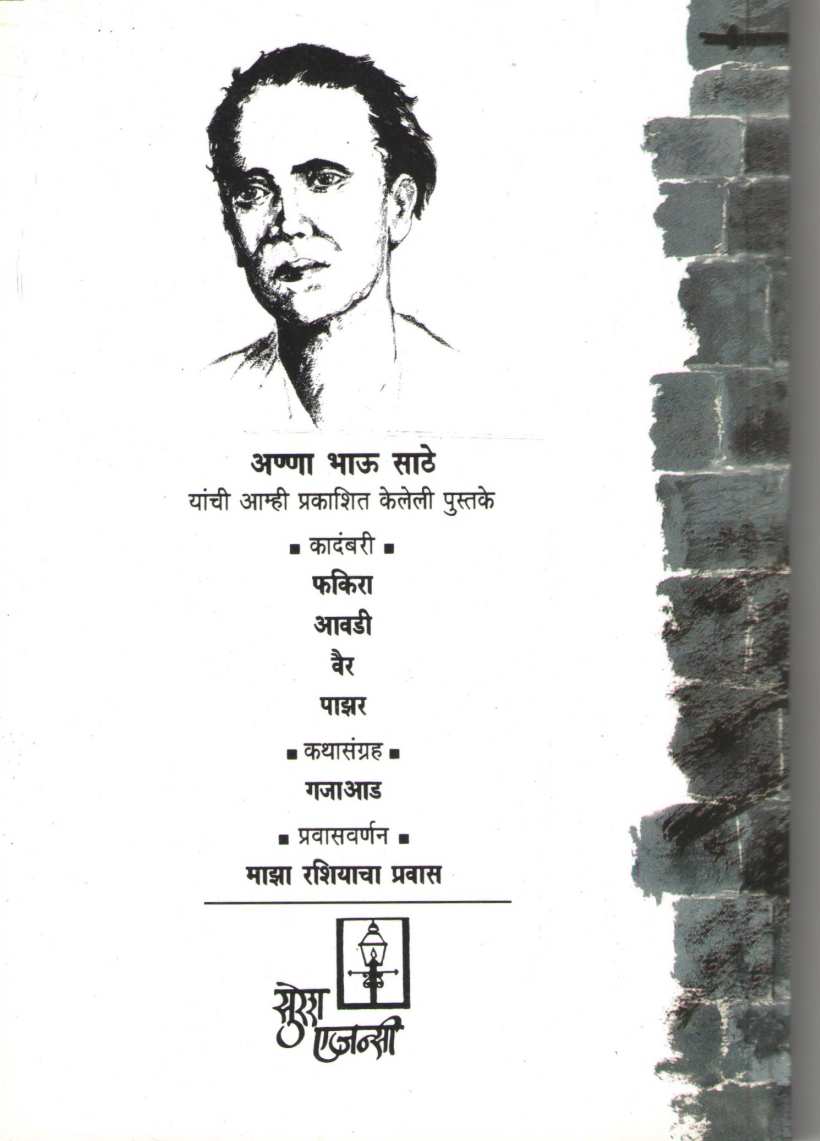 अण्णा भाऊ साठे
यांची आम्ही प्रकाशित केलेली पुस्तके
▪ कादंबरी ▪
फकिरा
आवडी
वैर
पाझर
▪ कथासंग्रह ▪
गजाआड
▪ प्रवासवर्णन ▪
माझा रशियाचा प्रवास
सुरेश
एजन्सी